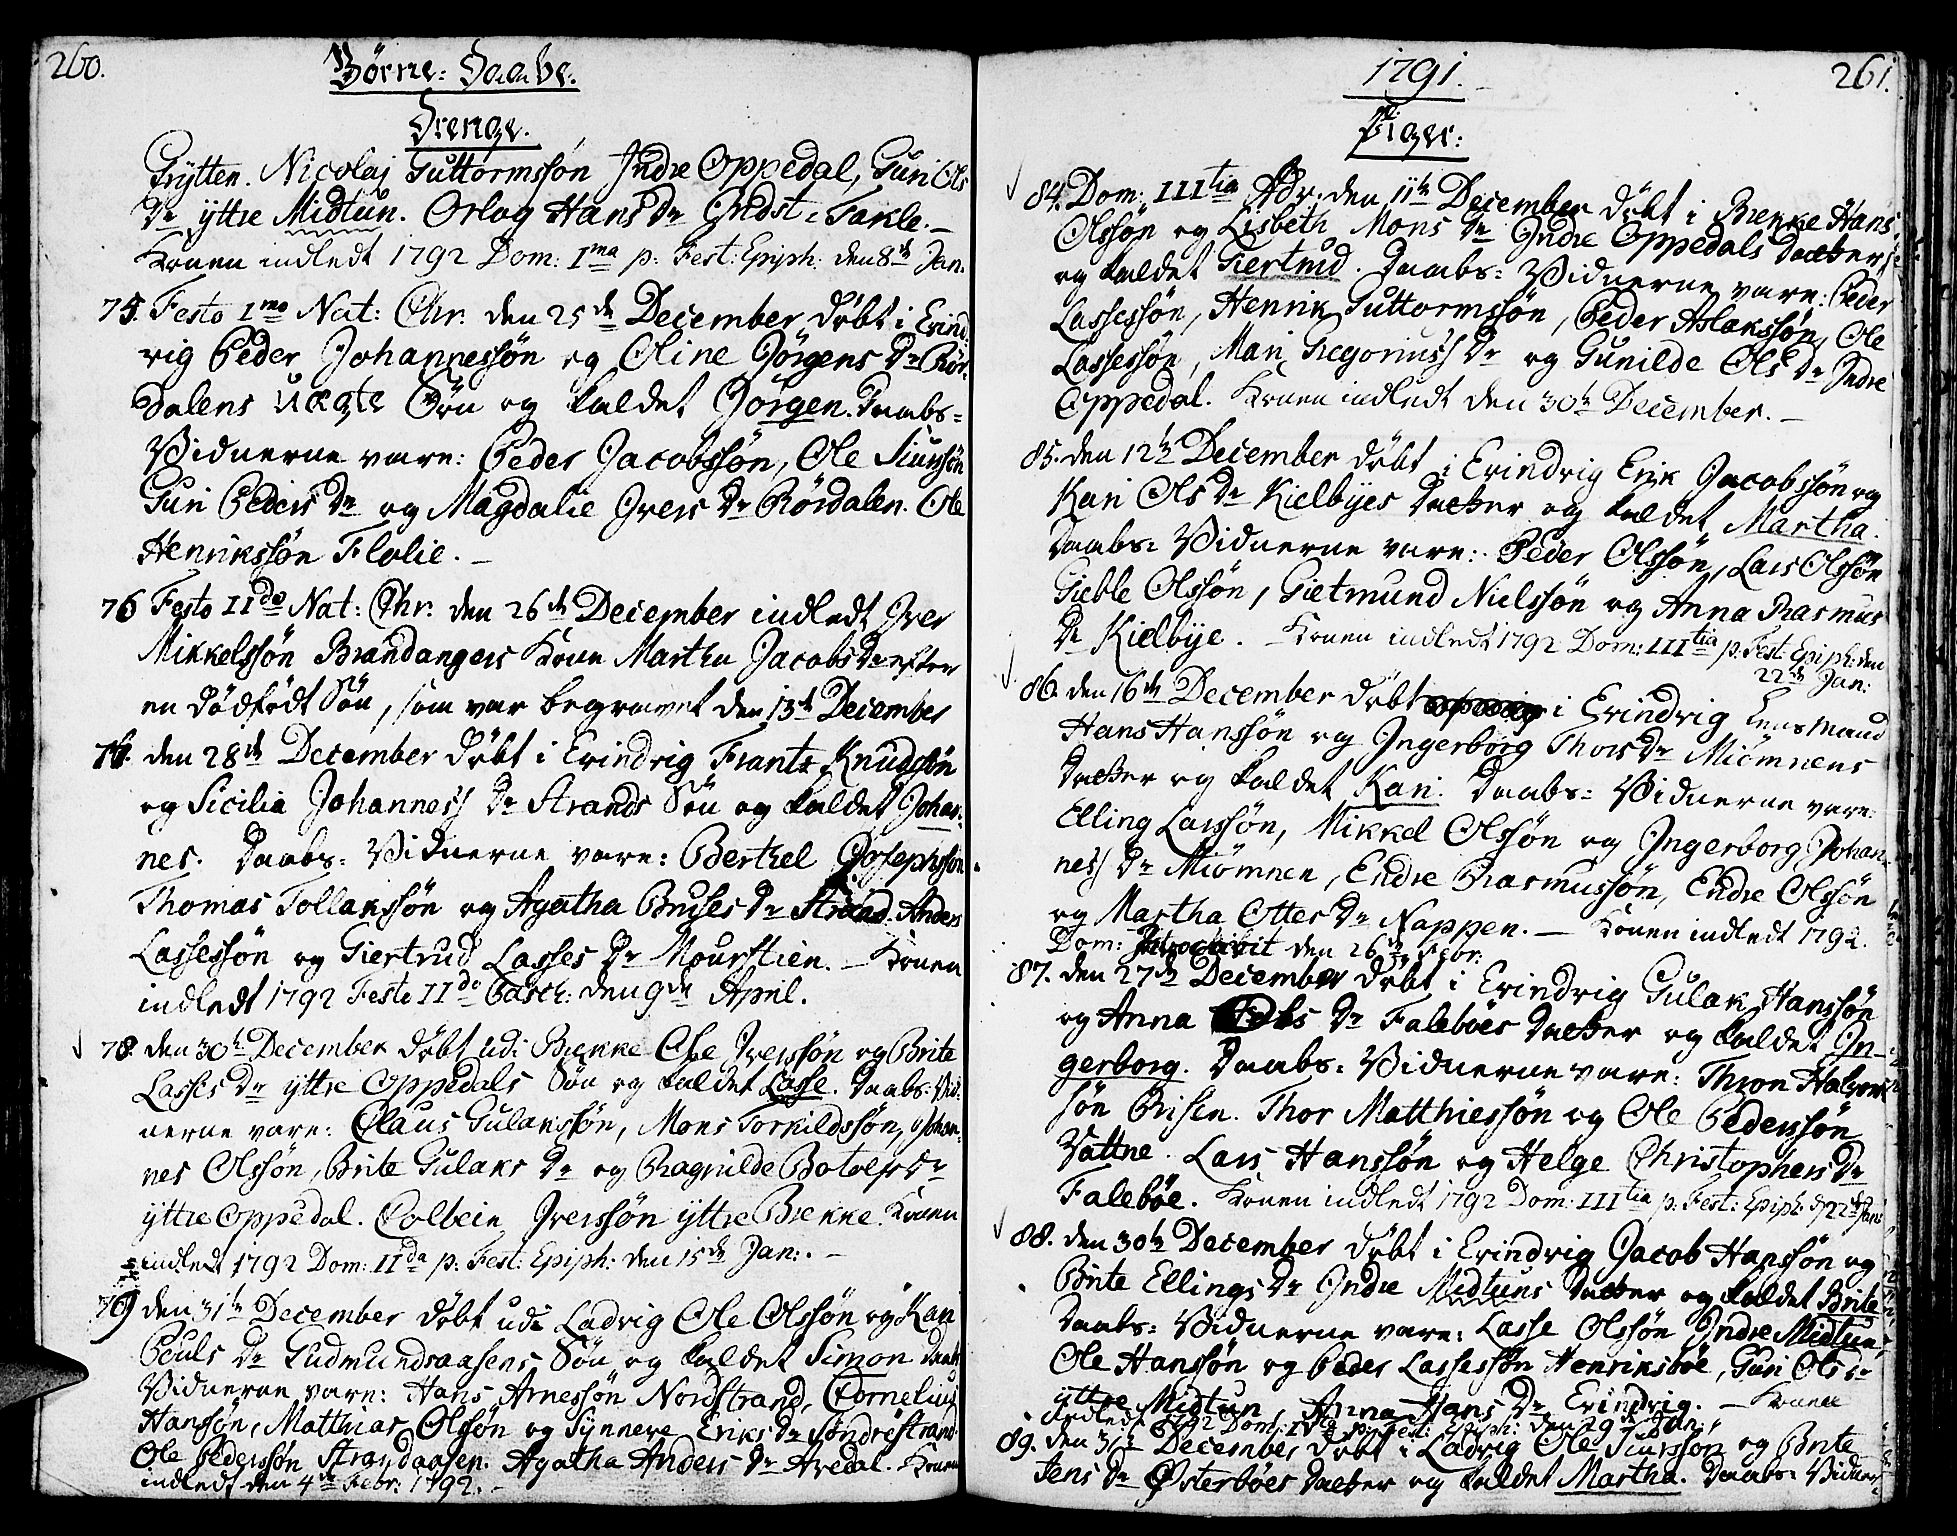 260.
Børne-Daabe.
Drenge.
Frÿtten. Nicolaj Guttormssøn Jndre Oppedal, Guri Ols
Dr ÿttre Midtun. Orlog Hans Dr Gndst. Takle. —
Konen indledt 1792 Dom: Ima p: Fest: Epiph: den 8de Jan.
75. Festo Imo Nat: Chr: den 25de December døbt i Evind-
vig Peder Johannessøn og Oline Jørgens Dr Rør-
dalens uægte Søn og kaldet Jørgen. Daabs-
Vidnerne vare: Peder Jacobssøn, Ole Siurssøn
Guri Peders Dr og Magdalie Jvers Dr Rørdalen. Ole
Henrikssøn Flolie. —
76 Festo IIdo Nat: Chr: den 26de December indledt Jver
Mikkelssøn Brandangers Kone Martha Jacobs Dr efter
en dødfødt Søn, som var begravet den 13de December
den 28de December døbt i Evindvig Frantz Knudssøn
og Sicilia Johannes Dr Strands Søn og kaldet Johan-
nes. Daabs-Vidnerne vare: Berthel Josephssøn
Thomas Tollakssøn og Agatha Bruses Dr Strand. Anders
Lassessøn og Giertrud Lasses Dr Mourstien. — Konen
indledt 1792 Festo IIdo Pasch: den 9de April.
78. den 30te December døbt udi Brekke Ole Jverssøn og Brite
Lasses Dr ÿttre Oppedals Søn og kaldet Lasse. Daabs-Vid-
nerne vare: Claus Gulakssøn, Mons Torkildssøn, Johan-
nes Olssøn, Brite Gulaks Dr og Ragnilde Botolfs Dr
ÿttre Oppedal. Colbein Jverssøn ÿttre Brekke. Konen
indledt 1792 Dom: IIda p: Fest: Epiph: den 15de Jan: . —
79 den 31te December døbt udi Ladvig Ole Olssøn og Kari
Pouls Dr Gudmundsaasens Søn og kaldet Simon Daabs-
Vidnerne vare: Hans Arnessøn Nordstrand, Cornelius
Hanssøn, Matthias Olssøn og Sÿnneve Eriks Dr Søndrestrand
Ole Pederssøn Strandaasen. Agatha Anders Dr Avedal. Konen
indledt den 4de Febr: 1792. —
1791.
261.
Piger:
84. Dom: IIItia Adv: den 11te December døbt i Brekke Hans
Olssøn og Lisbeth Mons Dr Jndre Oppedals Datter
og kaldet Giertrud. Daabs-Vidnerne vare: Peder
Lassessøn, Henrik Guttormssøn, Peder Aslakssøn, Ole
Lassessøn, Mari Gregorius Dr og Gunilde Ols Dr Jndre
Oppedal. Konen indledt den 30te December. —
85. den 12te December døbt i Evindvig Erik Jacobssøn og
Kari Ols Dr Kielbÿes Datter og kaldet Martha.
Daabs-Vidnerne vare: Peder Olssøn, Lars Olssøn
Gieble Olssøn, Gietmund Nielssøn og Anna Rasmus
Dr Kielbÿe. — Konen indledt 1792 Dom: IIItia p: Fest: Epiph: den
22de Jan:
86. den 16de December døbt i Evindvig Lensmand
Hans Hanssøn og Jngerborg Thors Dr Miømnens
Datter og kaldet Kari. Daabs-Vidnerne vare:
Elling Larssøn, Mikkel Olssøn og Jngerborg Johan-
nes Dr Miømnen, Endre Rasmussøn, Endre Olssøn
og Martha Otters Dr Nappen. — Konen indledt 1792.
Dom: den 26de Febr:
87. den 27de December døbt i Evindvig Gulak Hanssøn
og Anna Dr Falebøes Datter og kaldet Jn-
gerborg. Daabs-Vidnerne vare: Thron Halvor-
søn Brisen. Thor Matthiessøn og Ole Pederssøn
Vattne. Lars Hanssøn og Helge Christophers Dr
Falebøe. Konen indledt 1792 Dom: IIItia p: Fest: Epiph: d 22de Jan:
88. den 30te December døbt i Evindvig Jacob Hanssøn og
Brite Ellings Dr Jndre Midtuns Datter og kaldet Brite
Daabs-Vidnerne vare: Lasse Olssøn Jndre Midtun,
Ole Hanssøn og Peder Lassessøn Henriksbøe, Guri Ols Dr
ÿttre Midtun, Anna Hans Dr Evindvig. — Konen
indledt 1792 Dom: IVta p: Fest: Epiph: den 29de Jan:
89. den 31te December døbt i Ladvig Ole Siurssøn og Brite
Jens Dr Østerbøes Datter og kaldet Martha. Daabs-Vidner-